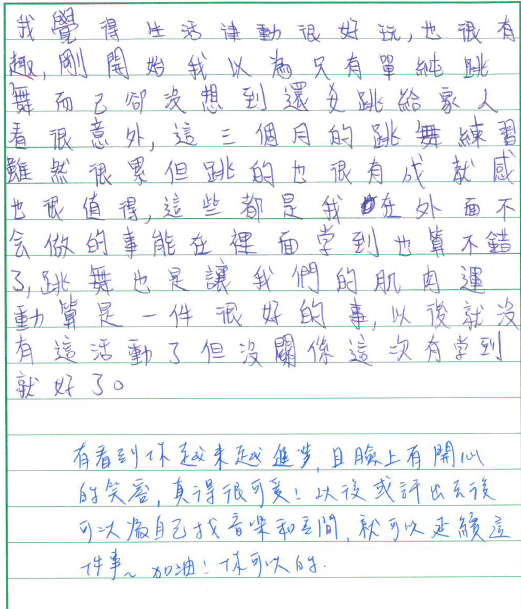 我覺得生活律動很好玩,也很有
趣,剛開始我以為只有單純跳
舞而已卻沒想到還要跳給家人
看很意外,這三個月的跳舞練習
雖然很累但跳的也很有成就感
也很值得,這些都是我在外面不
会做的事能在裡面学到也算不錯
了,跳舞也是讓我們的肌肉運
動算是一件很好的事,以後就沒
有這活動了但沒關係這次有学到
就好了。
有看到你越來越進步,且臉上有開心
的笑容,真得很可愛!以後或許出去後
可以為自己找音樂和空間,就可以延續這
件事~加油!你可以的.